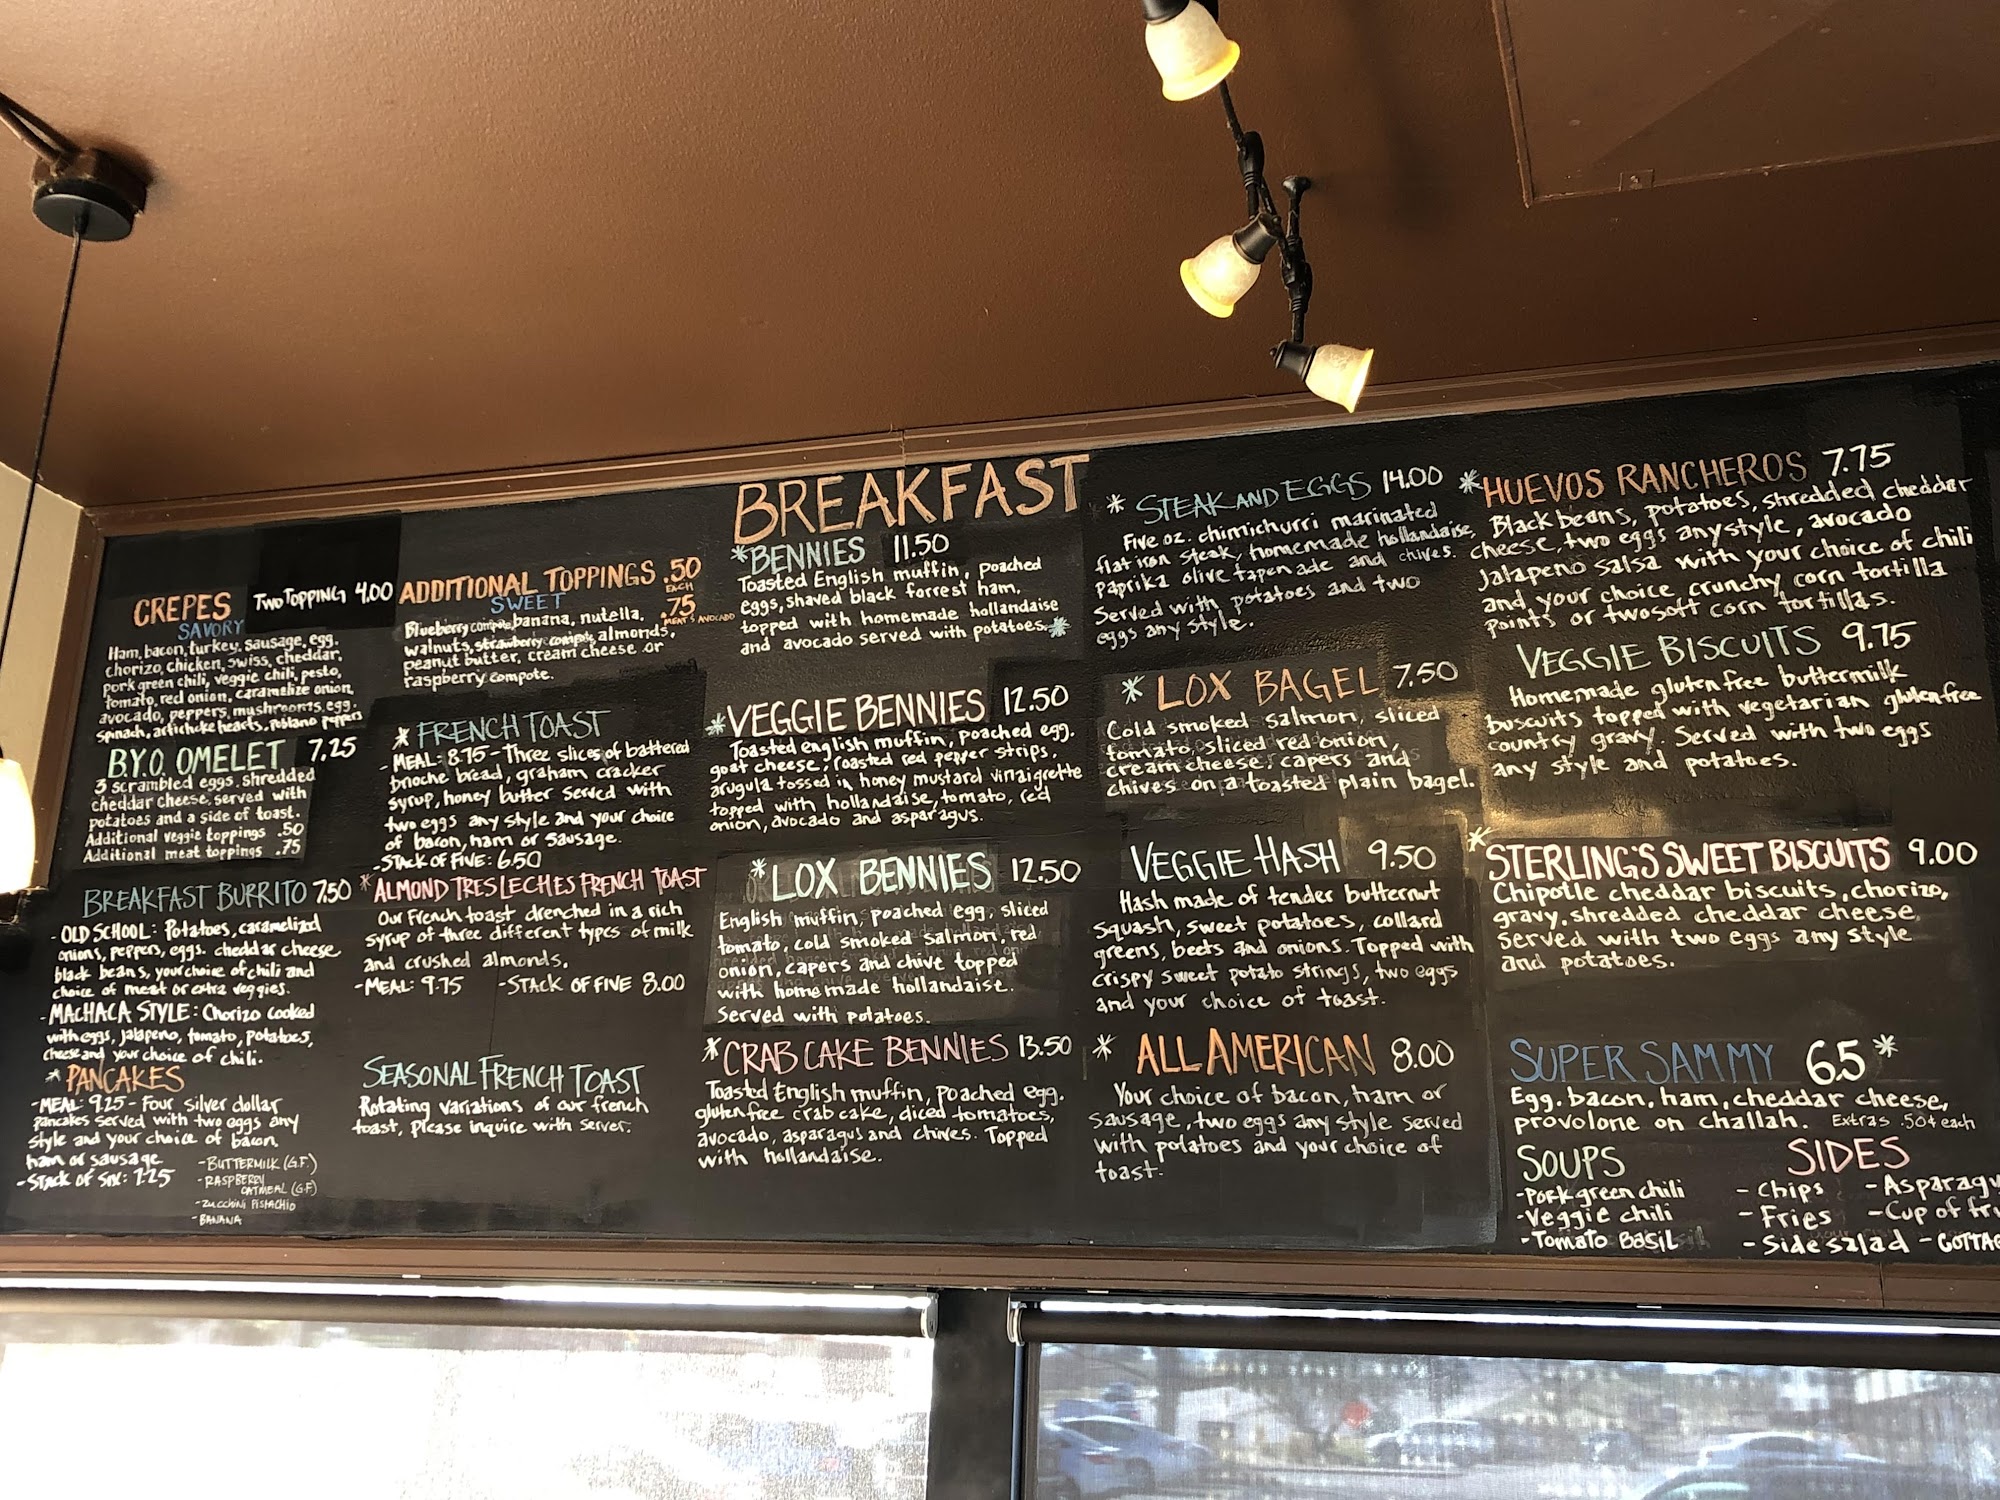 BREAKFAST
CREPES TWO TOPPING 4.00
SAVORY
Ham, bacon, turkey, sausage, egg.
chorizo, chicken, swiss, cheddar,
pork green chili, veggie chili, pesto,
tomato, red onion, caramelize onion,
avocado, peppers, mushrooms, egg.
spinach, artichoke hearts, poblano peppers
B.Y.O. OMELET 7.25
3 scrambled eggs, shredded
cheddar cheese, served with
potatoes and a side of toast.
Additional veggie toppings .50
Additional meat toppings .75
BREAKFAST BURRITO 7.50
- OLD SCHOOL: Potatoes, caramelized
onions, peppers, eggs. cheddar cheese
black beans, your choice of chili and
choice of meat or extra veggies.
- MACHACA STYLE: Chorizo cooked
with eggs, jalapeno, tomato, potatoes,
cheese and your choice of chili.
* PANCAKES
- MEAL: 9.25 - Four silver dollar
pancakes served with two eggs any
style and your choice of bacon,
ham or sausage
- STACK OF SIX: 7.25
- BUTTERMILK (G.F.)
- RASPBERRY
OATMEAL (G.F)
- ZUCCHINI PISTACHIO
- BANANA
ADDITIONAL TOPPINGS .50
EACH
SWEET .75
MEATS AVOCADO
Blueberry compote, banana, nutella,
walnuts, strawberry compote, almonds,
peanut butter, cream cheese or
raspberry compote.
* FRENCH TOAST
- MEAL: 8.75 - Three slices of battered
brioche bread, graham cracker
syrup, honey butter served with
two eggs any style and your choice
of bacon, ham or sausage.
- STACK OF FIVE: 6.50
* ALMOND TRES LECHES FRENCH TOAST
Our French toast drenched in a rich
syrup of three different types of milk
and crushed almonds.
- MEAL: 9.75 - STACK OF FIVE 8.00
SEASONAL FRENCH TOAST
Rotating variations of our french
toast, please inquire with server.
* BENNIES 11.50
Toasted English muffin, poached
eggs, shaved black forrest ham,
topped with homemade hollandaise
and avocado served with potatoes. *
* VEGGIE BENNIES 12.50
Toasted english muffin, poached egg.
goat cheese, roasted red pepper strips,
arugula tossed in honey mustard vinaigrette
topped with hollandaise, tomato, red
onion, avocado and asparagus.
* LOX BENNIES 12.50
English muffin, poached egg, sliced
tomato, cold smoked salmon, red
onion, capers and chive topped
with homemade hollandaise.
Served with potatoes.
* CRAB CAKE BENNIES 13.50
Toasted English muffin, poached egg.
gluten free crab cake, diced tomatoes,
avocado, asparagus and chives. Topped
with hollandaise.
* STEAK AND EGGS 14.00
Five oz. chimichurri marinated
flat iron steak, homemade hollandaise,
paprika olive tapenade and chives.
Served with potatoes and two
eggs any style.
* LOX BAGEL 7.50
Cold smoked salmon, sliced
tomato, sliced red onion,
cream cheese, capers and
chives on a toasted plain bagel.
VEGGIE HASH 9.50
Hash made of tender butternut
squash, sweet potatoes, collard
greens, beets and onions. Topped with
crispy sweet potato strings, two eggs
and your choice of toast.
* ALL AMERICAN 8.00
Your choice of bacon, ham or
sausage, two eggs any style served
with potatoes and your choice of
toast.
* HUEVOS RANCHEROS 7.75
Black beans, potatoes, shredded cheddar
cheese, two eggs any style, avocado
Jalapeno salsa with your choice of chili
and your choice crunchy corn tortilla
points or two soft corn tortillas.
VEGGIE BISCUITS 9.75
Homemade gluten free buttermilk
buscuits topped with vegetarian gluten free
country gravy. Served with two eggs
any style and potatoes.
* STERLING'S SWEET BISCUITS 9.00
Chipotle cheddar biscuits, chorizo,
gravy, shredded cheddar cheese,
served with two eggs any style
and potatoes.
SUPER SAMMY 6.5 *
Egg. bacon, ham, cheddar cheese,
provolone on challah. Extras .50¢ each
SOUPS
- Pork green chili
- Veggie chili
- Tomato Basil
SIDES
- Chips - Asparagu
- Fries - Cup of fru
- Side salad - COTTAG